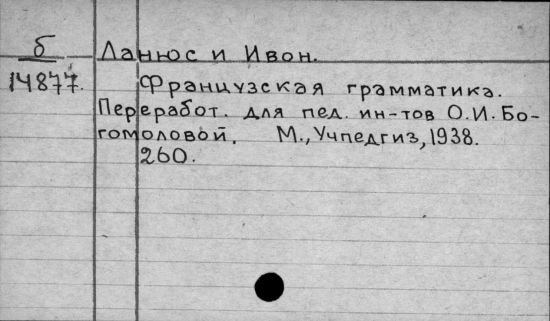 б Ланюс и Ивон.
14877. Французская грамматика.
Переработ. для пед. ин-тов О.И.Бо-
гомоловой. М., Учпедгиз, 1938.
260.